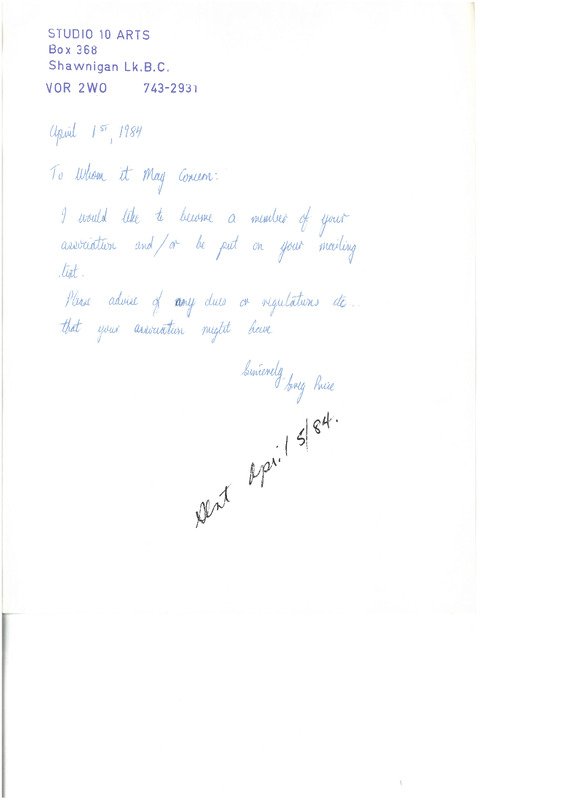 STUDIO 10 ARTS
Box 368
Shawnigan Lk.B.C.
VOR 2WO 743-2931
April 1st, 1984
To Whom it May Concern:
I would like to become a member of your
association and/or be put on your mailing
list.
Please advise of any dues or regulations etc..
that your association might have
Sincerely
Greg
Sent April 5/84.